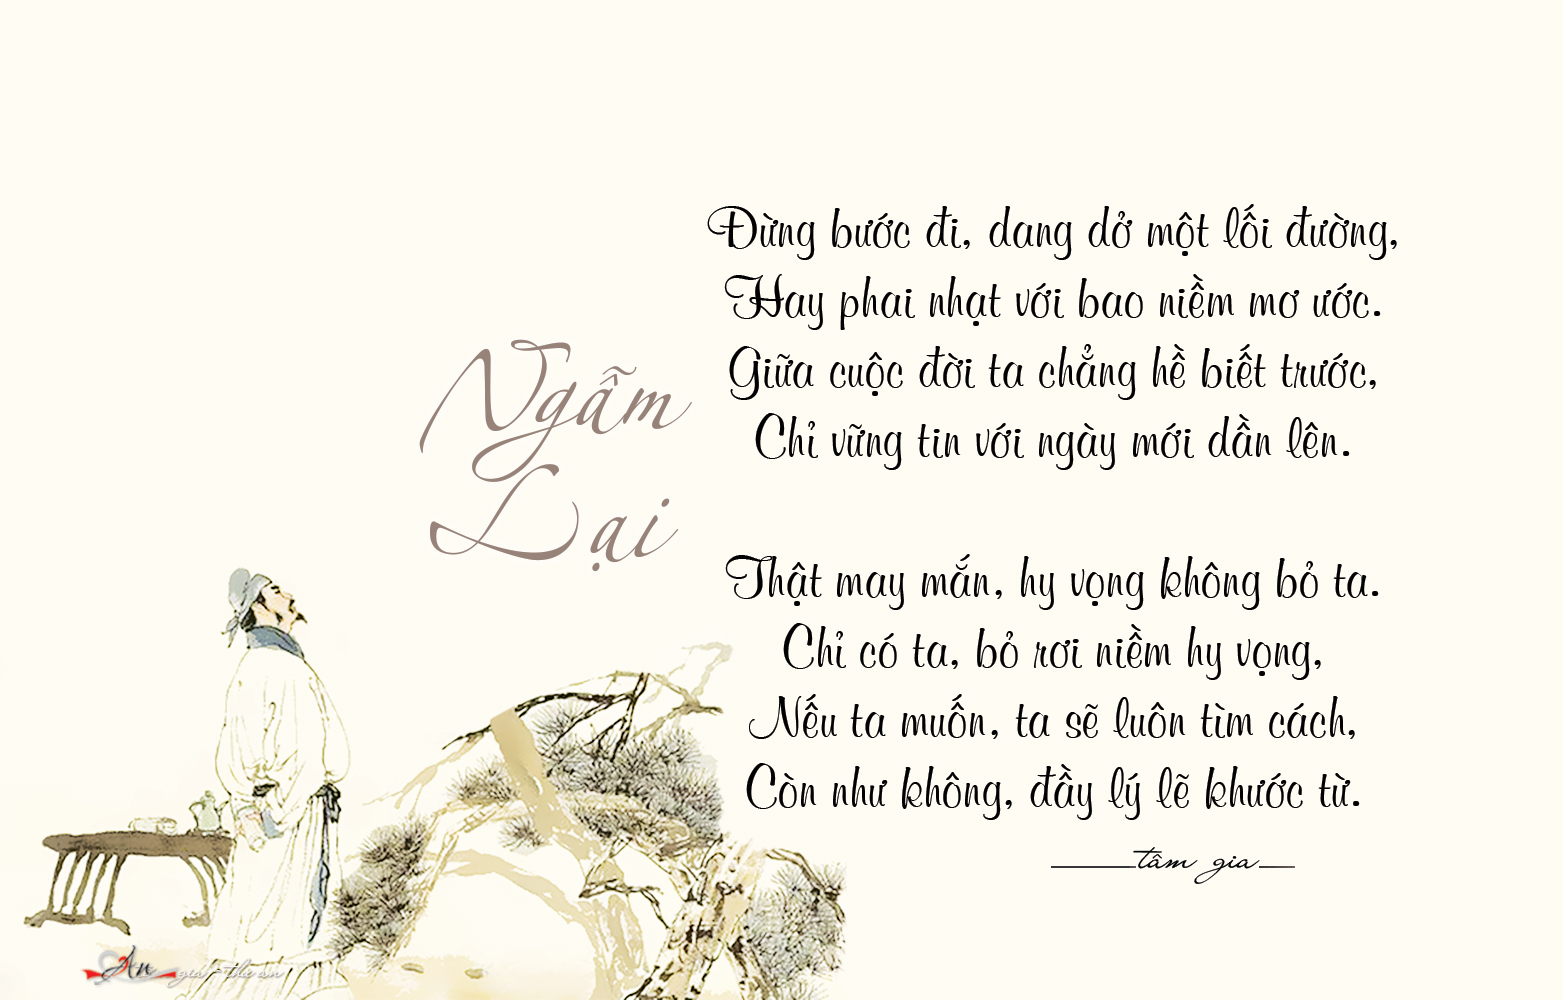 Ngẫm
Lại
Đừng bước đi, dang dở một lối đường,
Hay phai nhạt với bao niềm mơ ước.
Giữa cuộc đời ta chẳng hề biết trước,
Chỉ vững tin với ngày mới dần lên.
Thật may mắn, hy vọng không bỏ ta.
Chỉ có ta, bỏ rơi niềm hy vọng,
Nếu ta muốn, ta sẽ luôn tìm cách,
Còn như không, đầy lý lẽ khước từ.
tâm gia
An